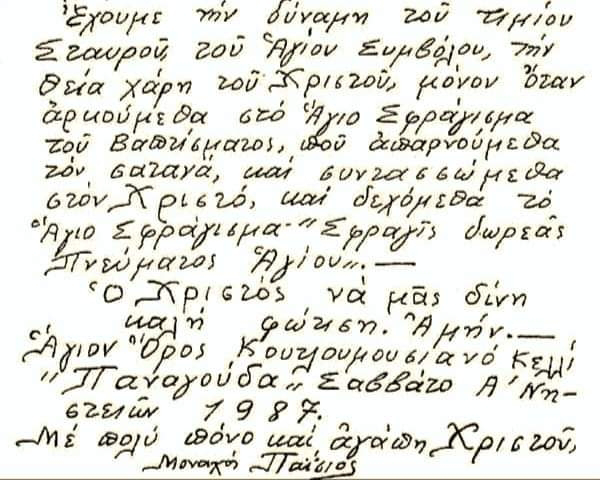 Ἔχουμε τήν δύναμη τοῦ τιμίου
Σταυροῦ, τοῦ Ἁγίου Συμβόλου, τήν
θεία χάρη τοῦ Χριστοῦ, μόνον ὅταν
ἀρκούμεθα στό Ἅγιο Σφράγισμα
τοῦ Βαπτίσματος, ποῦ ἀπαρνούμεθα
τόν σατανά, καί συντασσώμεθα
στόν Χριστό, καί δεχόμεθα τό
Ἅγιο Σφράγισμα-"Σφραγῖς δωρεᾶς
Πνεύματος Ἁγίου".—
Ὁ Χριστός νά μᾶς δίνη
καλή φώτιση. Ἀμήν.—
Ἅγιον Ὄρος Κουτλουμουσιανό Κελλί
"Παναγούδα" Σαββάτο Α' Νη-
στειῶν 1987.
Μέ πολύ πόνο καί ἀγάπη Χριστοῦ,
Μοναχός Παΐσιος